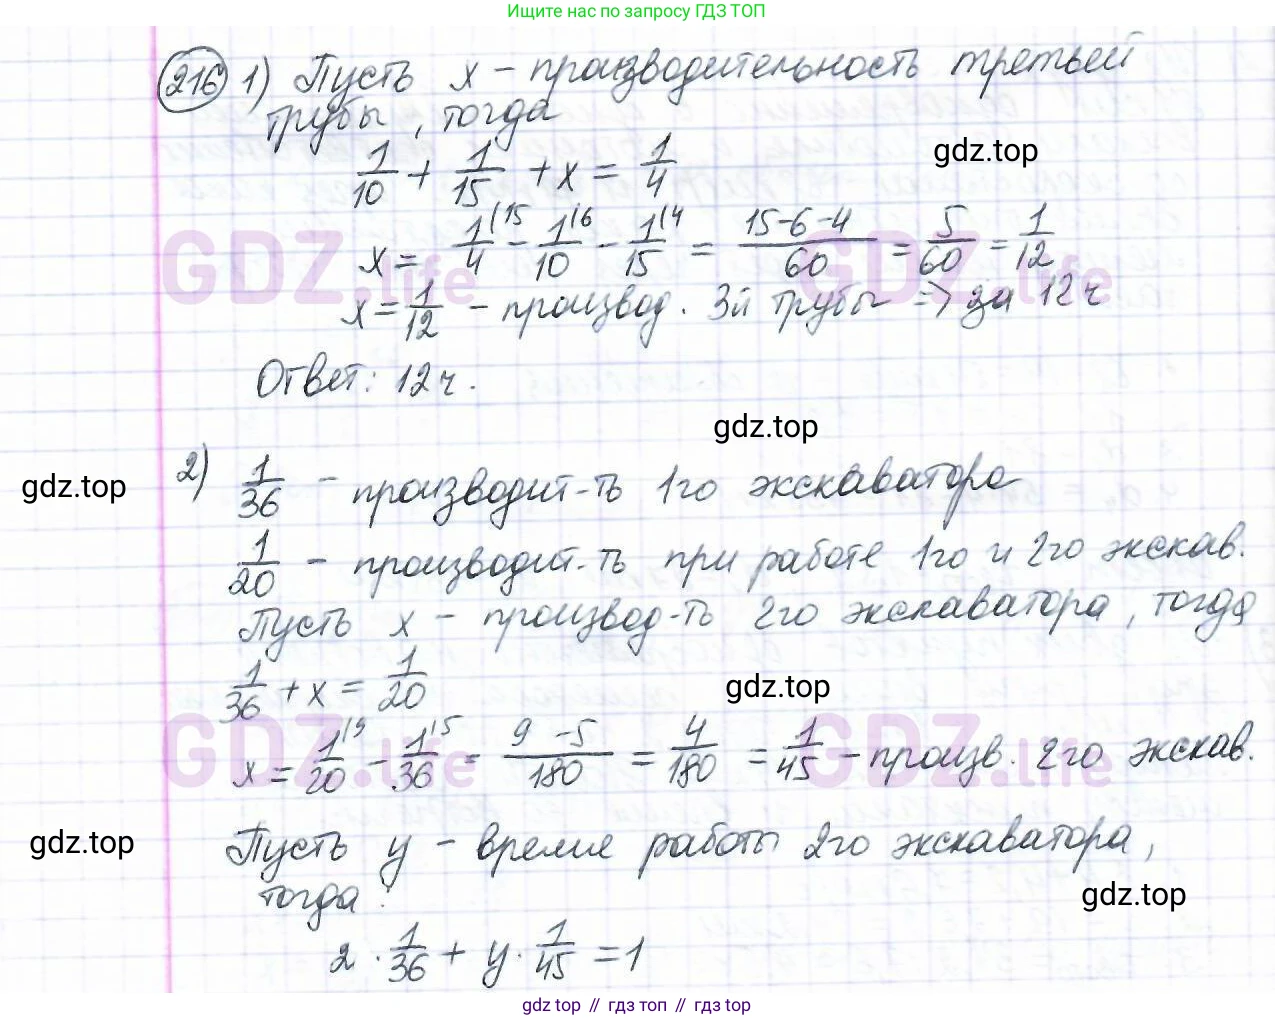 Ищите нас по запросу ГДЗ ТОП
216 1) Пусть x – производительность третьей
трубы, тогда
1/10 + 1/15 + x = 1/4
gdz.top
x = 1/4 (15 - 1/10 (6 - 1/15 (4 = (15-6-4)/60 = 5/60 = 1/12
GDZ.life GDZ.life
x = 1/12 – производ. 3й трубы => за 12 ч
Ответ: 12 ч.
gdz.top
gdz.top
2) 1/36 – производит-ть 1го экскаватора
1/20 – производит-ть при работе 1го и 2го экскав.
Пусть x – производ-ть 2го экскаватора, тогда
1/36 + x = 1/20
gdz.top
x = 1/20 (9 - 1/36 (5 = (9-5)/180 = 4/180 = 1/45 – произв. 2го экскав.
GDZ.life GDZ.life
gdz.top
Пусть y – время работы 2го экскаватора,
тогда:
gdz.top
2 · 1/36 + y · 1/45 = 1
gdz top // гдз топ // гдз top